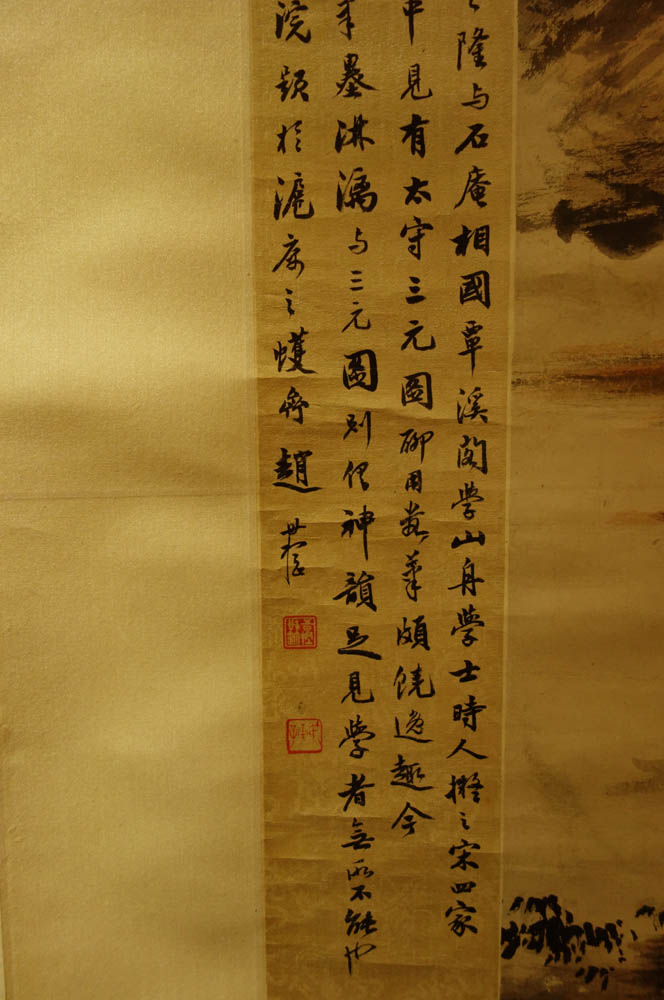 隆与石庵相國覃溪閣學山舟學士時人擬之宋四家
中見有太守三元圖聊用荒筆頗饒逸趣今
墨淋漓与三元圖別傳神韻足見學者無所不能也
題於滬寓之蠖齋趙